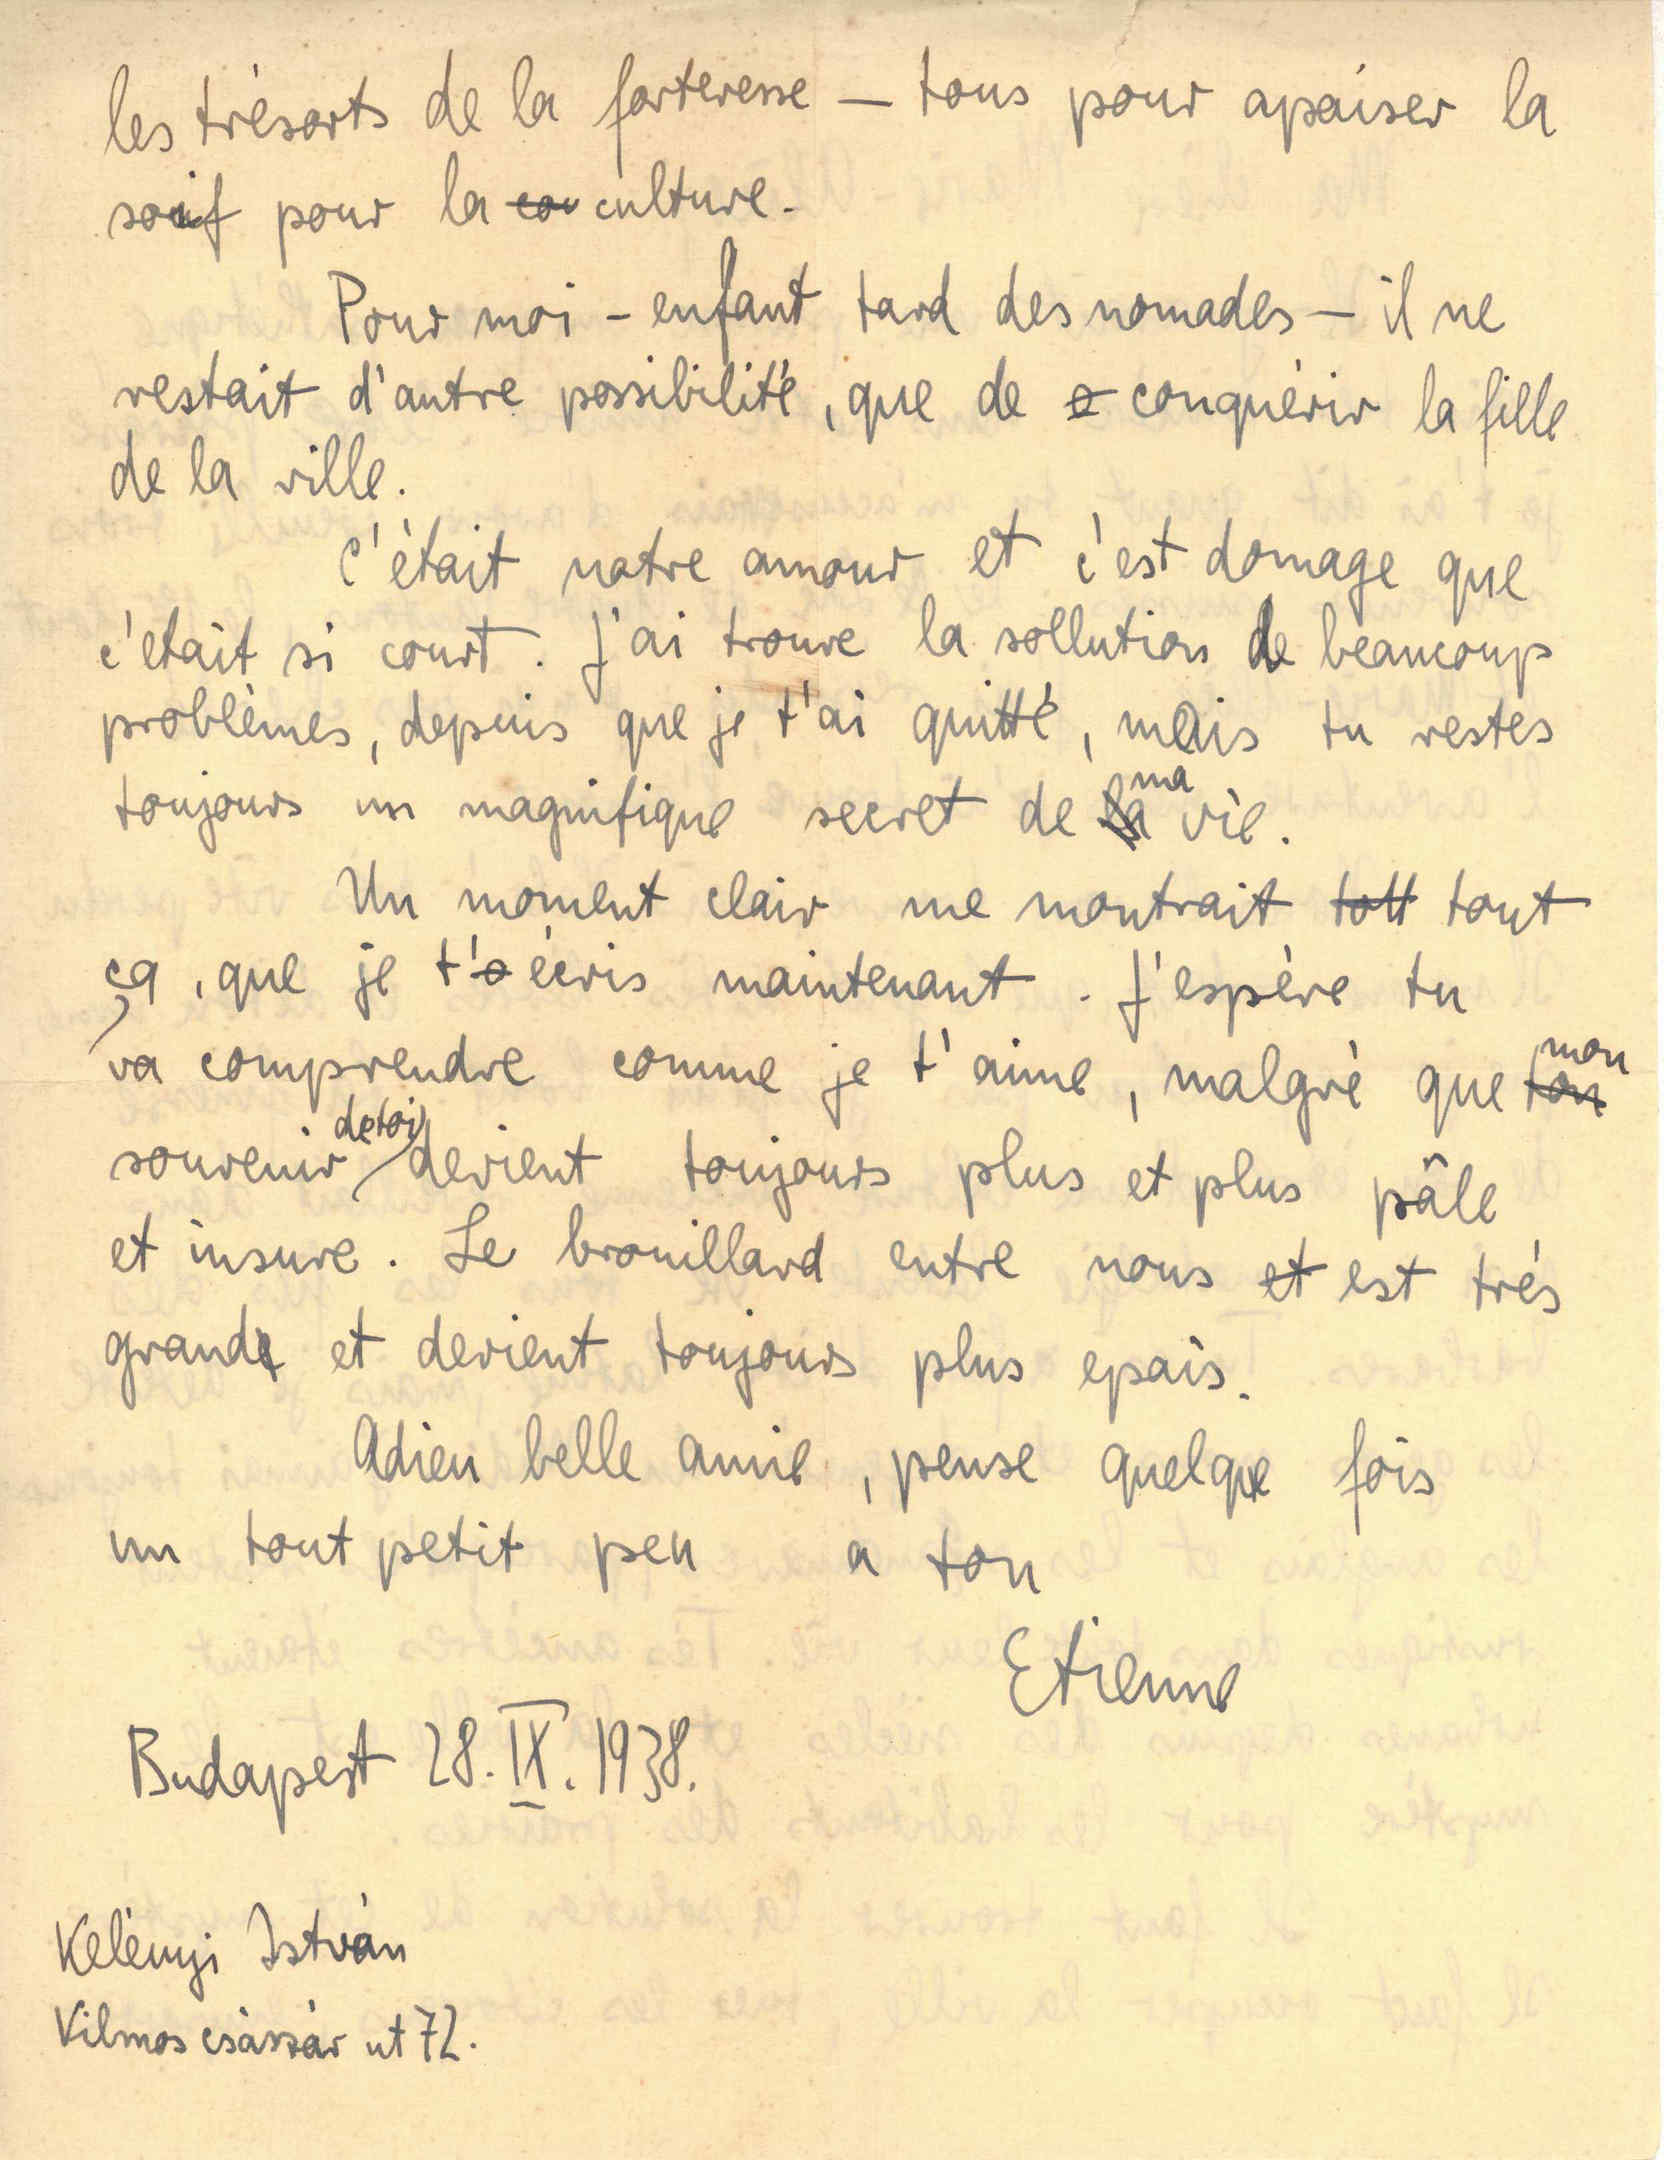 les trésorts de la forteresse — tous pour apaiser la
soif pour la cou culture.
Pour moi - enfant tard des nomades — il ne
restait d'autre possibilité, que de conquérir la fille
de la ville.
C'était notre amour et c'est domage que
c'etait si court. J'ai trouve la sollution de beaucoup
problèmes, depuis que je t'ai quitté, mais tu restes
toujours un magnifique secret de la ma vie.
Un moment clair me montrait tott tout
ça, que je t'écris maintenant. J'espère tu
va comprendre comme je t'aime, malgré que ton mon
souvenir de toi devient toujours plus et plus pâle
et insure. Le brouillard entre nous et est très
grande et devient toujours plus epais.
Adieu belle amie, pense quelque fois
un tout petit peu a ton
Etienne
Budapest 28. IX. 1938.
Kelényi István
Vilmos császár ut 72.